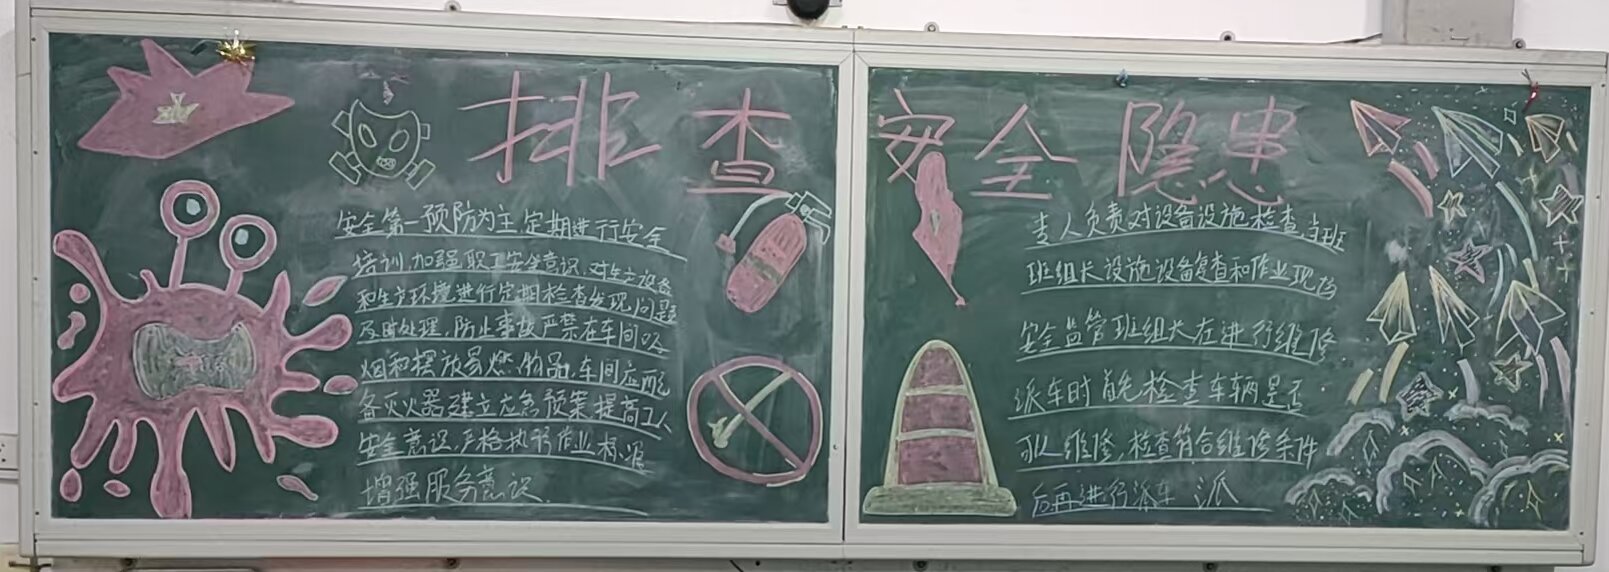 排查安全隐患
安全第一预防为主定期进行安全
培训,加强职工安全意识,对生产设备
和生产环境进行定期检查发现问题
及时处理,防止事故严禁在车间吸
烟和摆放易燃物品,车间应配
备灭火器建立应急预案提高工人
安全意识,严格执行作业标准
增强服务意识
专人负责对设备设施检查当班
班组长设施设备复查和作业现场
安全监管班组长在进行维修
派车时首先检查车辆是否
可以维修,检查符合维修条件
后再进行派车 派